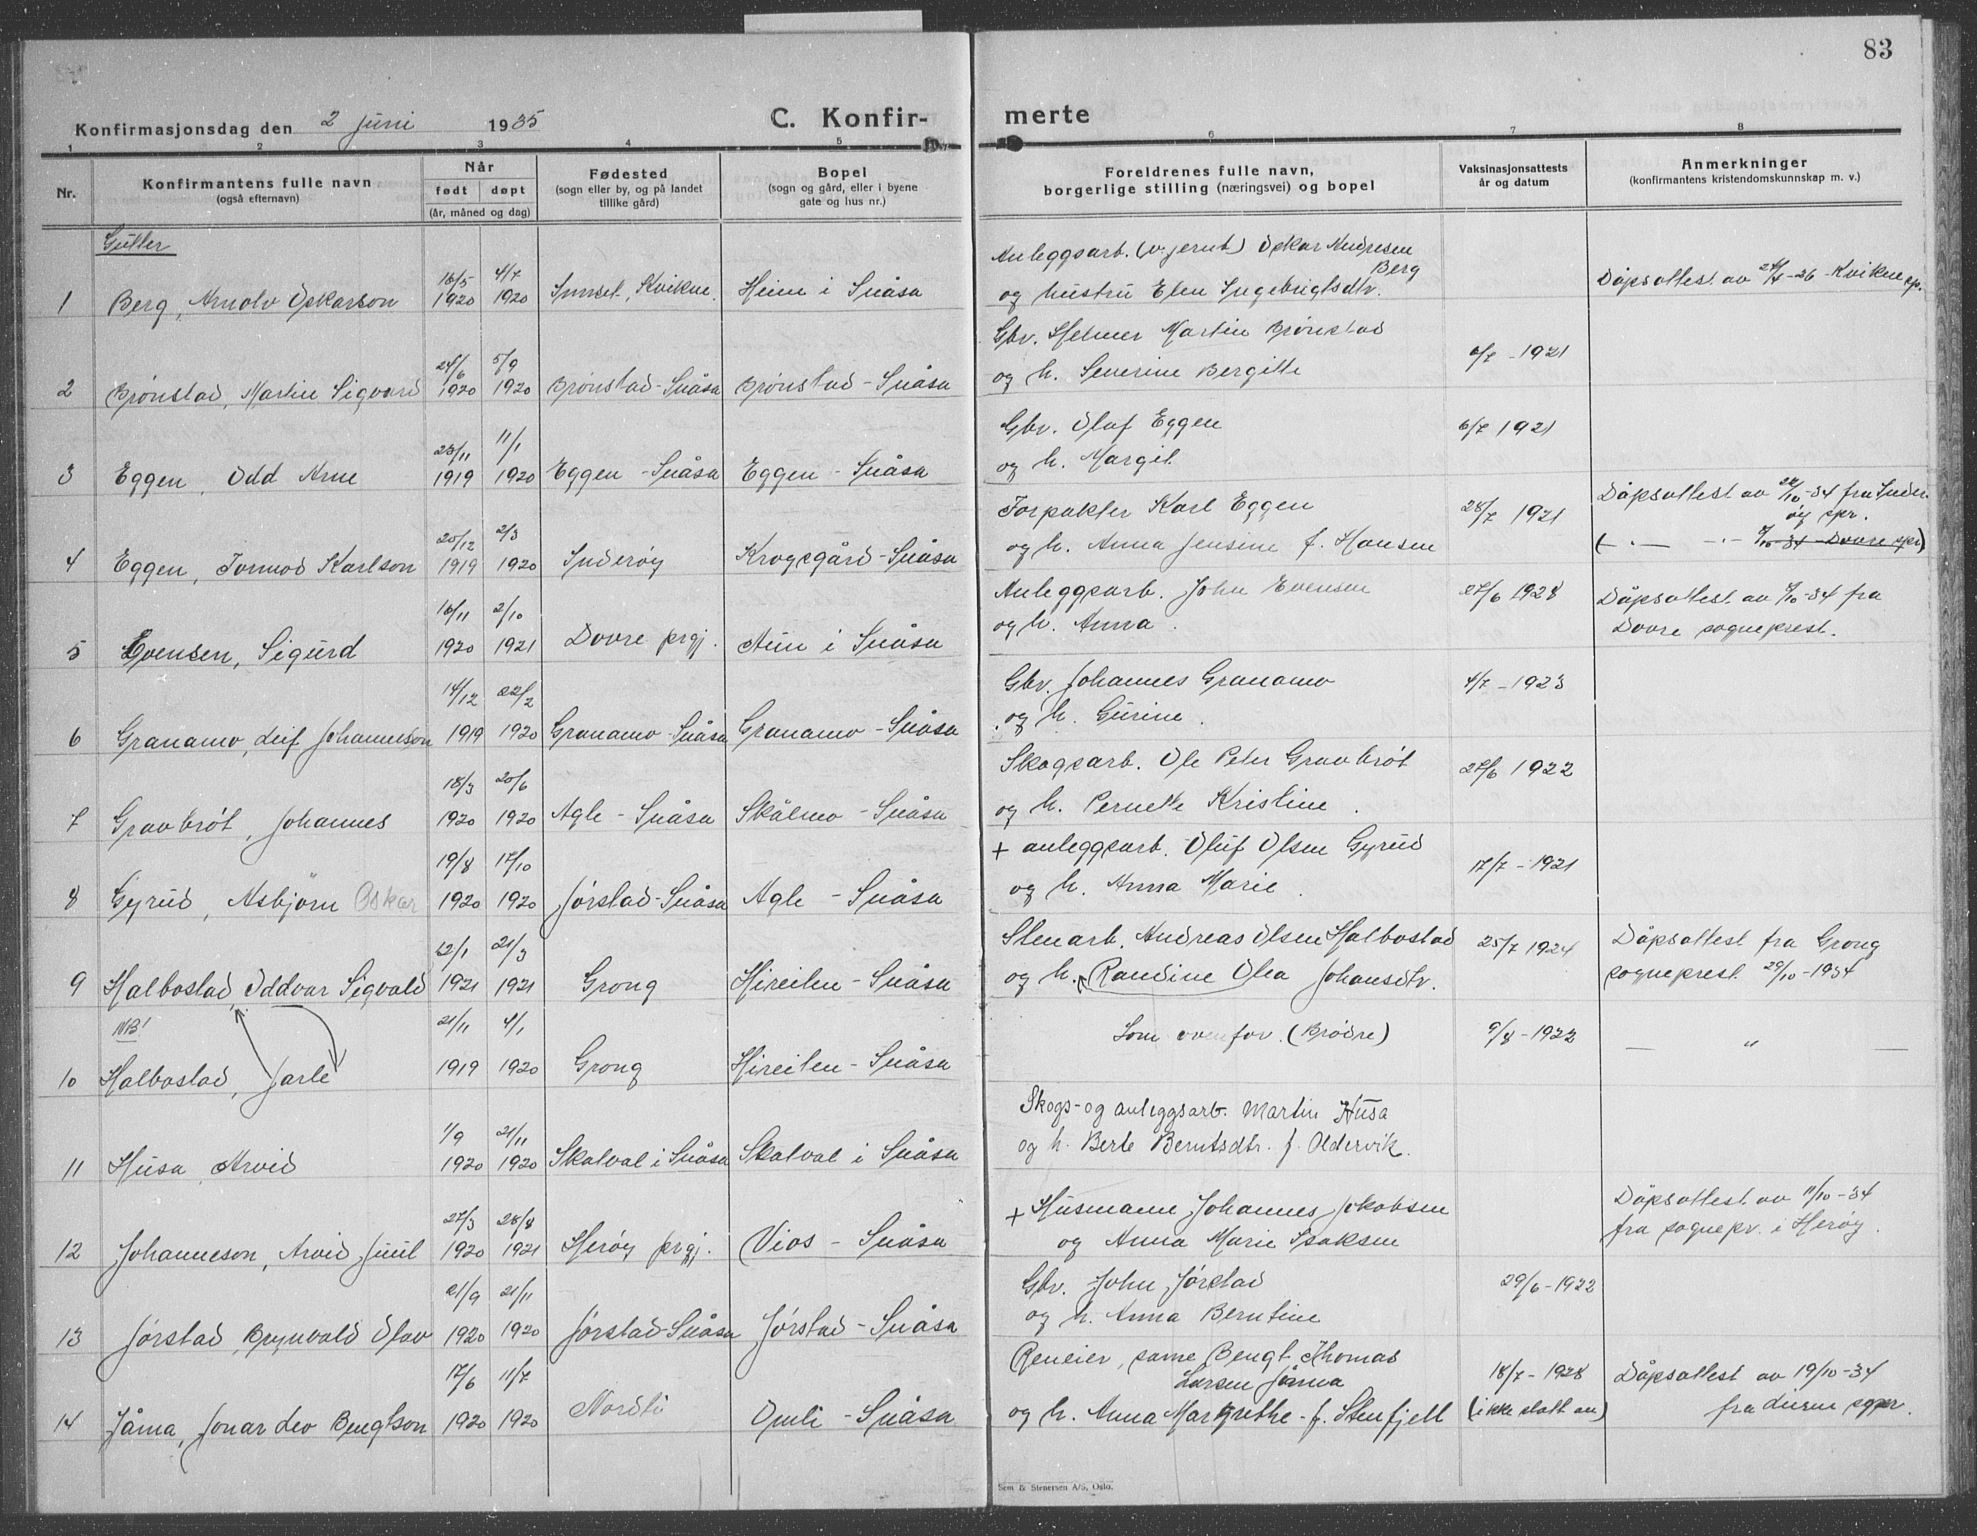 83
Konfirmasjonsdag den 2 Juni 1935
C. Konfir-
merte
1 2 3 4 5 6 7 8
Nr.
Konfirmantens fulle navn
(også efternavn)
Når
født døpt
(år, måned og dag)
Fødested
(sogn eller by, og på landet
tillike gård)
Bopel
(sogn og gård, eller i byene
gate og hus nr.)
Foreldrenes fulle navn,
borgerlige stilling (næringsvei) og bopel
Vaksinasjonsattests
år og datum
Anmerkninger
(konfirmantens kristendomskunnskap m. v.)
Gutter
16/5 4/7 Anleggsarb. (v. jernb) Oskar Andresen
Berg
1 Berg, Arnolv Oskarson 1920 1920 Innset, Kvikne. Heim i Snåsa og hustru Elen Ingebrigtsdtr. Dåpsattest av -26 Kvikne spr.
24/6 5/9 Gbr. Helmer Martin Brønstad
2 Brønstad, Martin Sigvard 1920 1920 Brønstad-Snåsa Brønstad-Snåsa og h. Severine Bergitte 6/7 -1921
23/11 11/1 Gbr. Olaf Eggen 6/7 1921
3 Eggen, Odd Arne 1919 1920 Eggen-Snåsa Eggen-Snåsa og h. Margit
20/12 2/3 Forpakter Karl Eggen 28/7 1921 Dåpsattest av 22/10-34 fra Inder-
øy spr.
4 Eggen, Tormod Karlson 1919 1920 Inderøy Krogsgård-Snåsa og h. Anna Jensine f. Hansen ( " - " 9/10-34 Dovre spr)
16/11 2/10 Anleggsarb. John Evensen 27/6 1928 Dåpsattest av 9/10-34 fra
5 Evensen, Sigurd 1920 1921 Dovre prgj. Heim i Snåsa og h. Anna. Dovre sogneprest.
14/12 22/2 Gbr. Johannes Granamo 4/7-1923
6 Granamo, Leif Johanneson 1919 1920 Granamo-Snåsa Granamo-Snåsa og h. Gurine.
18/3 20/6 Skogsarb. Ole Peter Gravbrøt 27/6 1922
7 Gravbrøt, Johannes 1920 1920 Agle-Snåsa Skålmo-Snåsa og h. Pernelle Kristine.
19/8 17/10 + anleggsarb. Oluf Olsen Gyrud 17/7-1921
8 Gyrud, Asbjørn Oskar 1920 1920 Jørstad-Snåsa Agle-Snåsa og h. Anna Marie.
22/1 21/3 Stenarb. Andreas Olsen Halbostad 25/7 1924 Dåpsattest fra Grong
9 Halbostad, Oddvar Sigvald 1921 1921 Grong Hireiten-Snåsa og h. Randine Olea Johansdtr. sogneprest 29/10-1934
NB! 21/11 4/1 Som ovenfor. (Brødre) 9/8-1922 — " —
10 Halbostad, Jarle 1919 1920 Grong Hireiten-Snåsa
1/9 21/11 Skogs- og anleggsarb. Martin Husa
11 Husa, Arvid 1920 1920 Skatval i Snåsa Skatval i Snåsa og h. Berte Berntsdtr. f. Oldervik.
27/3 28/8 + Husmann Johannes Jakobsen Dåpsattest av 11/10-34
12 Johanneson, Arvid Juul 1920 1921 Herøy prgj. Vios-Snåsa og Anna Marie Isaksen fra sognepr. i Herøy.
21/9 21/11 Gbr. John Jørstad 29/6-1922
13 Jørstad, Brynvald Olav 1920 1920 Jørstad-Snåsa Jørstad-Snåsa og h. Anna Berntine
17/6 11/7 Reneier, same Bengt Thomas
Larsen Jåma 18/7-1928 Dåpsattest av 19/10-34
14 Jåma, Jonar Leo Bengtson 1920 1920 Nordli Omli-Snåsa og h. Anna Margrethe f. Stenfjell (ikke slått an) fra Lierne spr.
Sem & Stenersen A/S, Oslo.